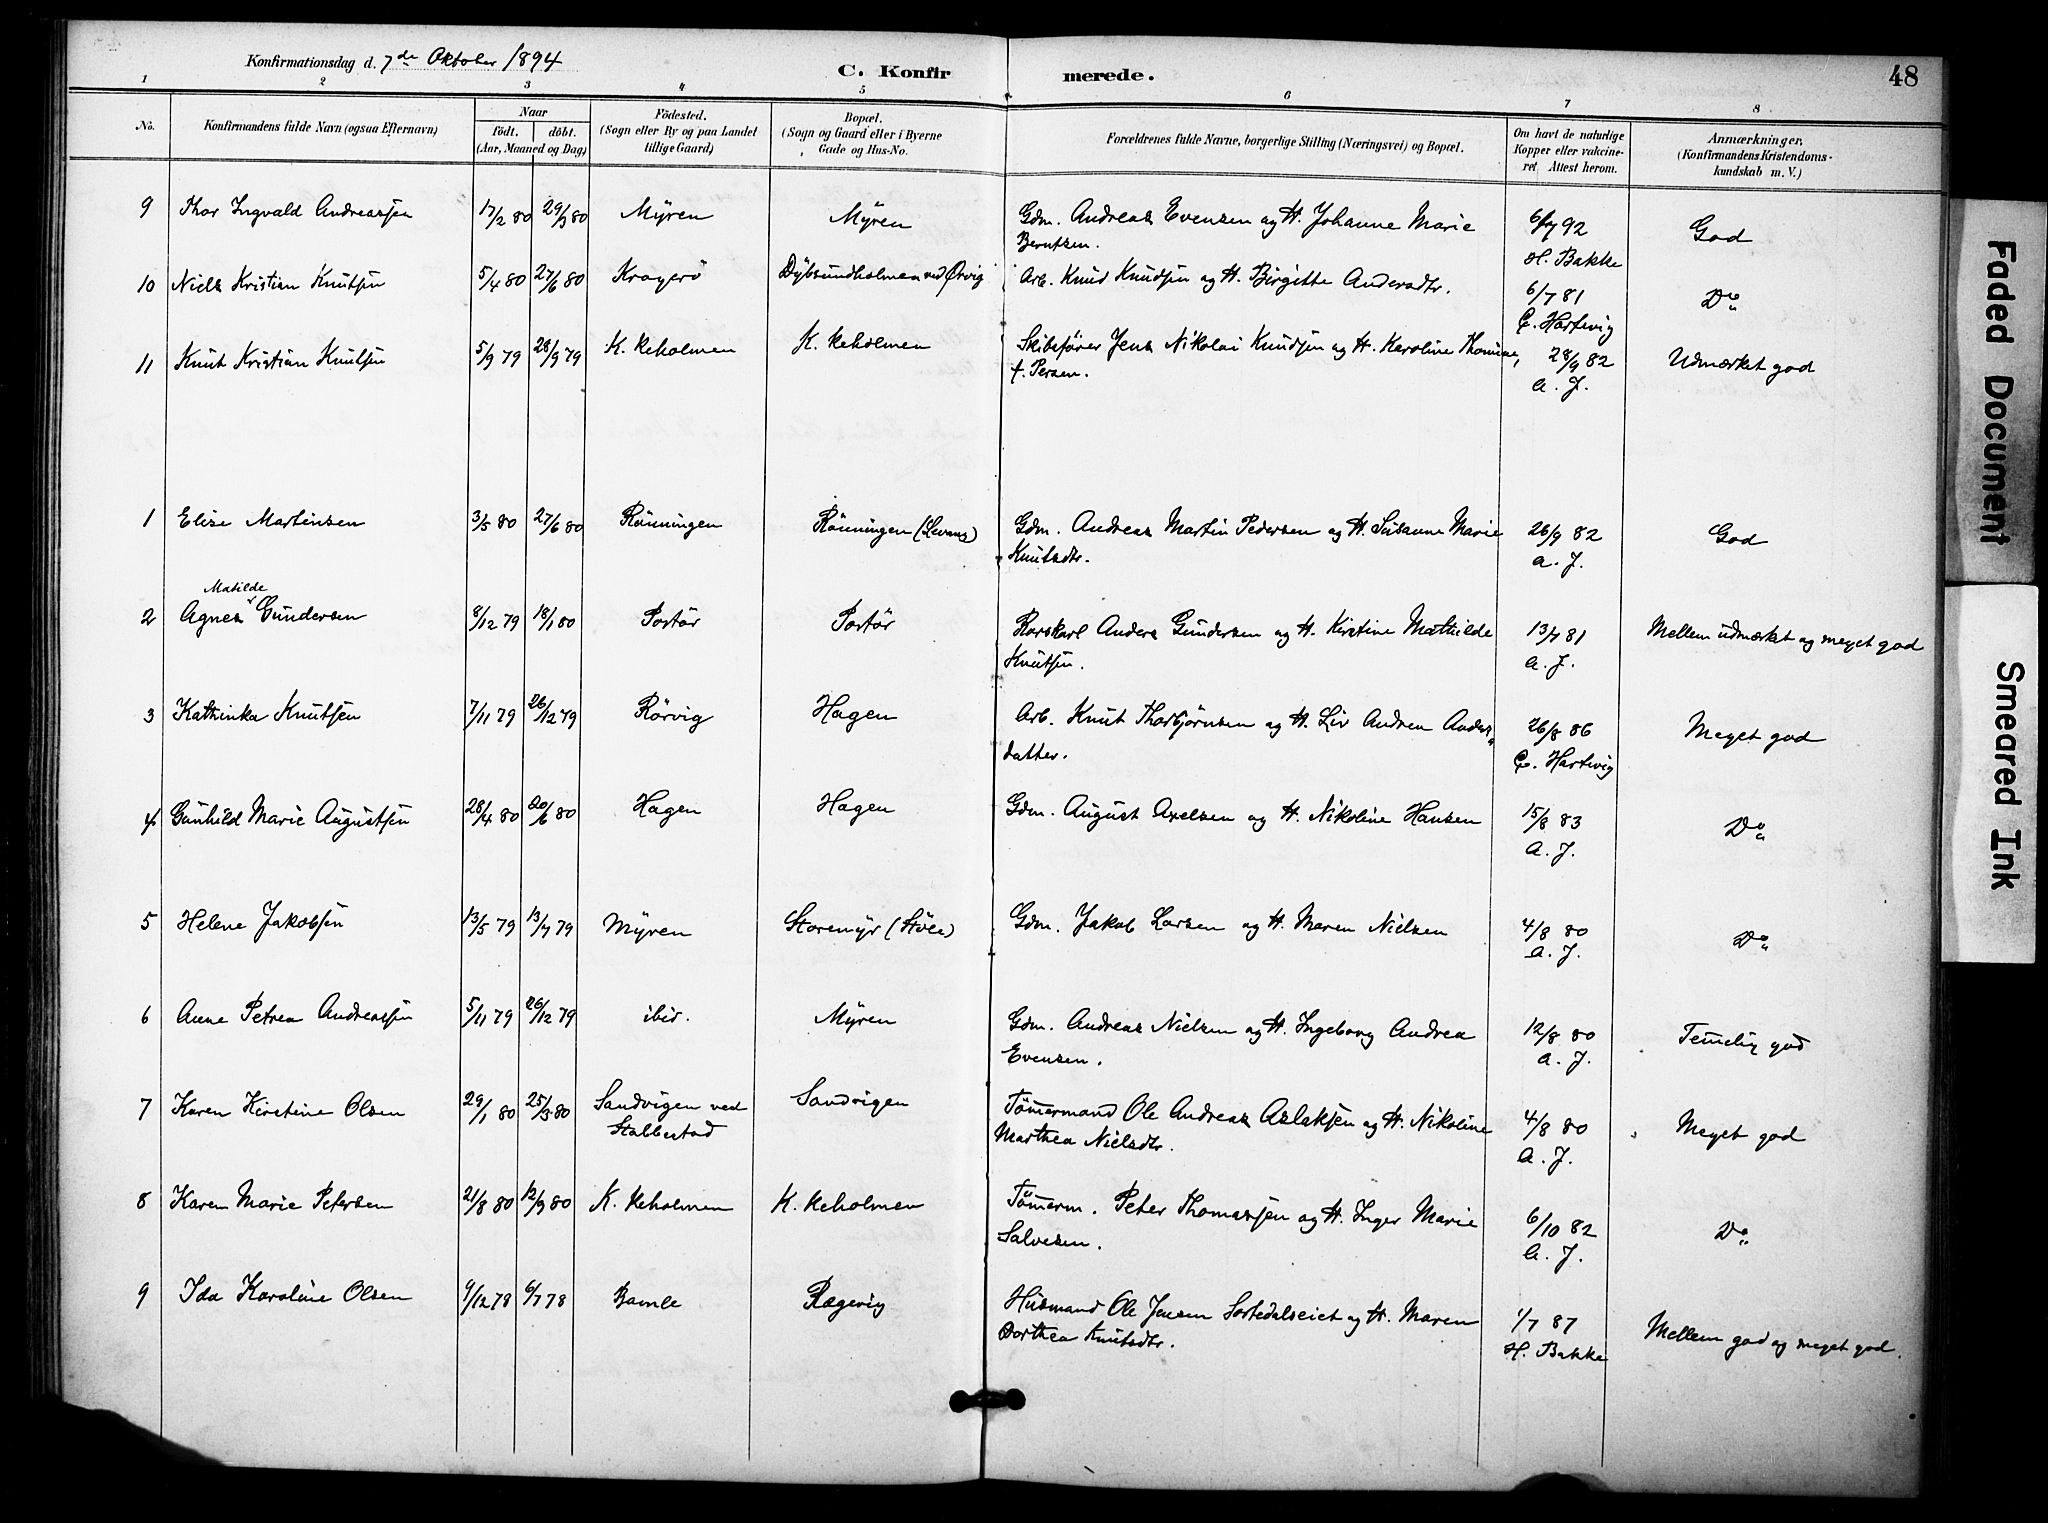 Konfirmationsdag d. 7de Oktober 1894
C. Konfirmerede.
48
1 2 3 4 5 6 7 8
No. Konfirmandens fulde Navn (ogsaa Efternavn) Naar født. døbt. (Aar, Maaned og Dag) Fødested. (Sogn eller By og paa Landet tillige Gaard) Bopæl. (Sogn og Gaard eller i Byerne Gade og Hus-No. Forældrenes fulde Navne, borgerlige Stilling (Næringsvei) og Bopæl. Om havt de naturlige Kopper eller vakcineret Attest herom. Anmærkninger. (Konfirmandens Kristendomskundskab m. V.)
9 Thor Ingvald Andreassen 17/2 80 29/3 80 Myren Myren Gdm. Andreas Evensen og H. Johanne Marie 92 God
Berntsen. H. Bakke
10 Niels Kristian Knutsen 5/4 80 27/6 80 Kragerö Dybsundholmen ved Ørvig Arb. Knud Knudsen og H. Birgitte Andersdtr. 6/7 81 Do
C. Hartvig
11 Knut Kristian Knutsen 5/9 79 28/9 79 K. Reholmen K. Reholmen Skibsfører Jens Nikolai Knudsen og H. Karoline Thomine, 28/9 82 Udmærket god
f. Persen. A. J.
1 Elise Martinsen 3/5 80 27/6 80 Rönningen Rönningen (Levang) Gdm. Andreas Martin Pedersen og H. Susanne Marie 26/9 82 God
Knutsdtr. A. J.
Matilde
2 Agnes Gundersen 8/12 79 18/1 80 Portör Portör Anders Gundersen og H. Kirstine Mathilde 13/7 81 Mellem udmærket og meget god
Knutsen. A. J.
3 Kathinka Knutsen 7/11 79 26/12 79 Rörvig Hagen Arb. Knut Thorbjörnsen og H. Liv Andrea Anders- 26/8 86 Meget god
datter. C. Hartvig
4 Gunhild Marie Augustsen 28/4 80 20/6 80 Hagen Hagen Gdm. August Axelsen og H. Nikoline Hansen 15/8 83 Do
A. J.
5 Helene Jakobsen 13/5 79 13/7 79 Myren Storemyr (Stöle) Gdm. Jakob Larsen og H. Maren Nielsen 4/8 80 Do
A. J.
6 Anne Petrea Andreassen 5/11 79 26/12 79 ibid. Myren Gdm. Andreas Nielsen og H. Ingeborg Andrea 12/8 80 Temelig god
Evensen. A. J.
7 Karen Kirstine Olsen 29/1 80 25/3 80 Sandvigen ved Sandvigen Tömermand Ole Andreas Aslaksen og H. Nikoline 4/8 80 Meget god
Stabbestad Marthea Nielsdtr. A. J.
8 Karen Marie Petersen 21/8 80 12/9 80 K. Reholmen K. Reholmen Tömerm. Peter Thomassen og H. Inger Marie 6/10 82 Do
Salvesen. A. J.
9 Ida Karoline Olsen 9/12 78 6/7 78 Bamle Rægevig Husmand Ole Jensen Sortedalseiet og H. Maren 1/7 87 Mellem god og meget god.
Dorthea Knutsdtr. H. Bakke
Faded Document
Smeared Ink